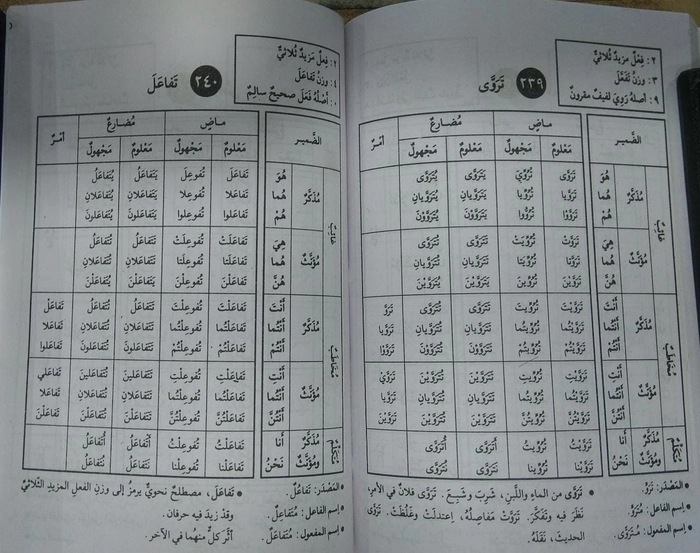 ٢ : فِعْلٌ مَزيدٌ ثُلاثيٌّ
٣ : وزنُ تَفَعَّلَ
٩ : أصلهُ رَوِيَ لفيفٌ مقرونٌ
٢٣٩ تَرَوَّى
الضَّمير ماضٍ مُضارعٌ أمْرٌ
مَعْلومٌ مَجْهولٌ مَعْلومٌ مَجْهولٌ
غائِبٌ
مُذَكَّرٌ
هُوَ تَرَوَّى تُرُوِّيَ يَتَرَوَّى يُتَرَوَّى
هُما تَرَوَّيا تُرُوِّيا يَتَرَوَّيانِ يُتَرَوَّيانِ
هُمْ تَرَوَّوْا تُرُوُّوا يَتَرَوَّوْنَ يُتَرَوَّوْنَ
مُؤنَّثٌ
هِيَ تَرَوَّتْ تُرُوِّيَتْ تَتَرَوَّى تُتَرَوَّى
هُما تَرَوَّتا تُرُوِّيَتا تَتَرَوَّيانِ تُتَرَوَّيانِ
هُنَّ تَرَوَّيْنَ تُرُوِّينَ يَتَرَوَّيْنَ يُتَرَوَّيْنَ
مُخاطَبٌ
مُذَكَّرٌ
أنْتَ تَرَوَّيْتَ تُرُوِّيتَ تَتَرَوَّى تُتَرَوَّى تَرَوَّ
أنْتُما تَرَوَّيْتُما تُرُوِّيتُما تَتَرَوَّيانِ تُتَرَوَّيانِ تَرَوَّيا
أنْتُمْ تَرَوَّيْتُمْ تُرُوِّيتُمْ تَتَرَوَّوْنَ تُتَرَوَّوْنَ تَرَوَّوْا
مُؤنَّثٌ
أنْتِ تَرَوَّيْتِ تُرُوِّيتِ تَتَرَوَّيْنَ تُتَرَوَّيْنَ تَرَوَّيْ
أنْتُما تَرَوَّيْتُما تُرُوِّيتُما تَتَرَوَّيانِ تُتَرَوَّيانِ تَرَوَّيا
أنْتُنَّ تَرَوَّيْتُنَّ تُرُوِّيتُنَّ تَتَرَوَّيْنَ تُتَرَوَّيْنَ تَرَوَّيْنَ
مُتَكَلِّمٌ
مُذَكَّرٌ أنا تَرَوَّيْتُ تُرُوِّيتُ أتَرَوَّى أُتَرَوَّى
ومُؤنَّثٌ نَحْنُ تَرَوَّيْنا تُرُوِّينا نَتَرَوَّى نُتَرَوَّى
• المَصْدَر: تَرَوٍّ.
• إسم الفاعل: مُتَرَوٍّ.
• إسم المفعول: مُتَرَوَّى.
• تَرَوَّى من الماءِ واللَّبنِ، شَرِبَ وشَبِعَ. تَرَوَّى فلانٌ في الأمرِ،
نَظَرَ فيه وتَفَكَّرَ. تَرَوَّتْ مَفاصِلُهُ، اِعتدلَتْ وغَلُظَتْ. تَرَوَّى
الحديثَ، نَقَلَهُ.
٢ : فِعْلٌ مَزيدٌ ثُلاثيٌّ
٤ : وزنُ تَفاعَلَ
٠ : أصلُهُ فَعَلَ صحيحٌ سالمٌ
٢٤٠ تَفاعَلَ
الضَّمير ماضٍ مُضارعٌ أمْرٌ
مَعْلومٌ مَجْهولٌ مَعْلومٌ مَجْهولٌ
غائِبٌ
مُذَكَّرٌ
هُوَ تَفاعَلَ تُفوعِلَ يَتَفاعَلُ يُتَفاعَلُ
هُما تَفاعَلا تُفوعِلا يَتَفاعَلانِ يُتَفاعَلانِ
هُمْ تَفاعَلوا تُفوعِلوا يَتَفاعَلونَ يُتَفاعَلونَ
مُؤنَّثٌ
هِيَ تَفاعَلَتْ تُفوعِلَتْ تَتَفاعَلُ تُتَفاعَلُ
هُما تَفاعَلَتا تُفوعِلَتا تَتَفاعَلانِ تُتَفاعَلانِ
هُنَّ تَفاعَلْنَ تُفوعِلْنَ يَتَفاعَلْنَ يُتَفاعَلْنَ
مُخاطَبٌ
مُذَكَّرٌ
أنْتَ تَفاعَلْتَ تُفوعِلْتَ تَتَفاعَلُ تُتَفاعَلُ تَفاعَلْ
أنْتُما تَفاعَلْتُما تُفوعِلْتُما تَتَفاعَلانِ تُتَفاعَلانِ تَفاعَلا
أنْتُمْ تَفاعَلْتُمْ تُفوعِلْتُمْ تَتَفاعَلونَ تُتَفاعَلونَ تَفاعَلوا
مُؤنَّثٌ
أنْتِ تَفاعَلْتِ تُفوعِلْتِ تَتَفاعَلينَ تُتَفاعَلينَ تَفاعَلي
أنْتُما تَفاعَلْتُما تُفوعِلْتُما تَتَفاعَلانِ تُتَفاعَلانِ تَفاعَلا
أنْتُنَّ تَفاعَلْتُنَّ تُفوعِلْتُنَّ تَتَفاعَلْنَ تُتَفاعَلْنَ تَفاعَلْنَ
مُتَكَلِّمٌ
مُذَكَّرٌ أنا تَفاعَلْتُ تُفوعِلْتُ أتَفاعَلُ أُتَفاعَلُ
ومُؤنَّثٌ نَحْنُ تَفاعَلْنا تُفوعِلْنا نَتَفاعَلُ نُتَفاعَلُ
• المَصْدَر: تَفاعُلٌ.
• إسم الفاعل: مُتَفاعِلٌ.
• إسم المفعول: مُتَفاعَلٌ.
• تَفاعَلَ، مصطلحٌ نحويٌّ يرمزُ إلى وزنِ الفعلِ المزيدِ الثّلاثيِّ
وقدْ زيدَ فيه حرفان.
أثّرَ كلٌّ منهُما في الآخر.